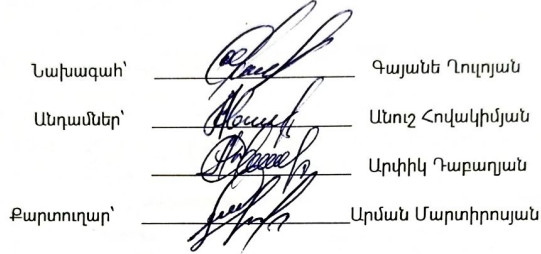 Նախագահ՝ Գայանե Ղուլոյան
Անդամներ՝ Անուշ Հովակիմյան
Արփիկ Դաբաղյան
Քարտուղար՝ Արման Մարտիրոսյան